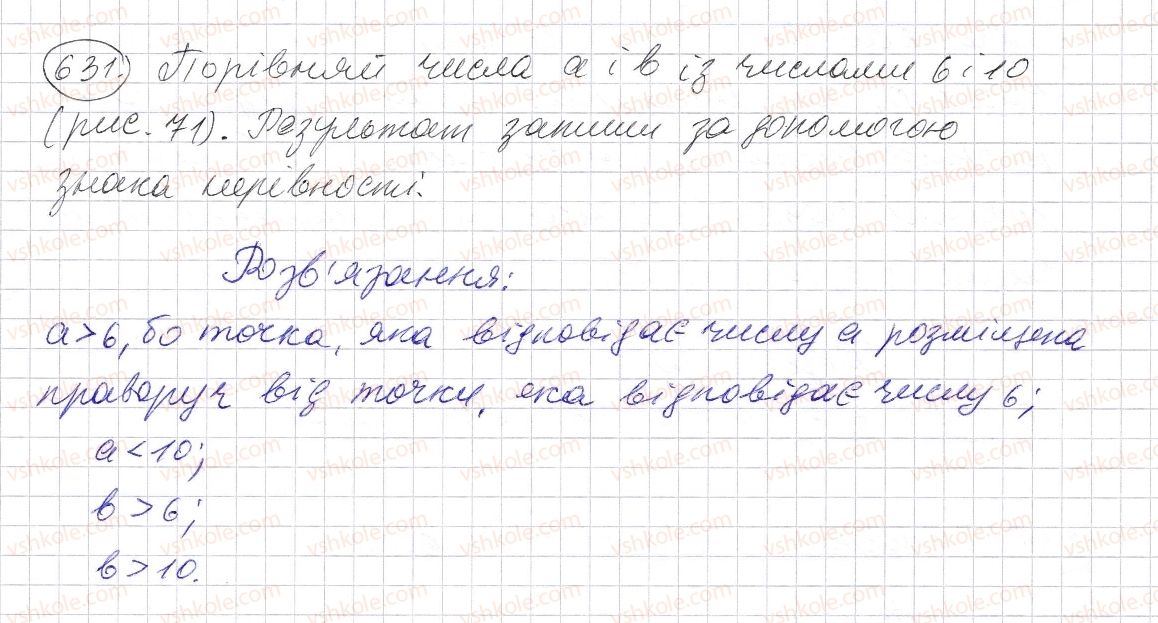 631. Порівняй числа a і b із числами 6 і 10
(рис. 71). Результат запиши за допомогою
знака нерівності.
Розв'язання:
a > 6, бо точка, яка відповідає числу a розміщена
праворуч від точки, яка відповідає числу 6;
a < 10;
b > 6;
b > 10.